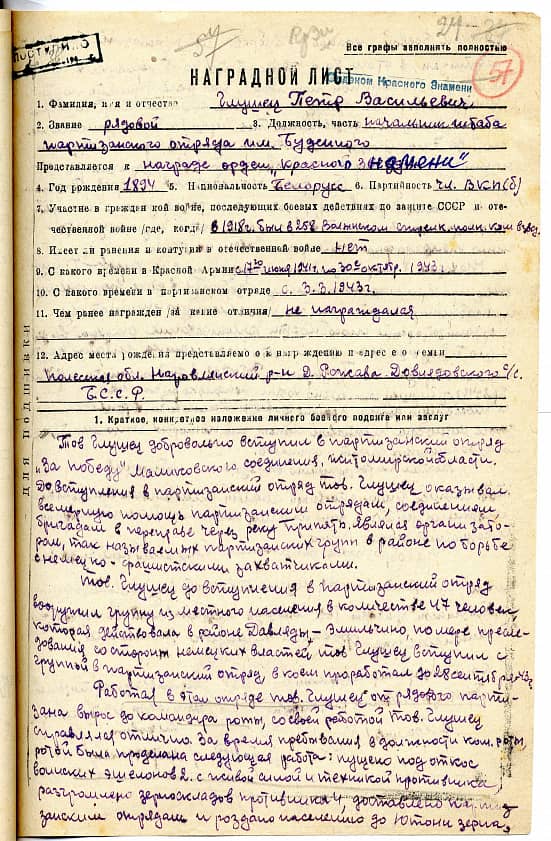 ПОСТУПИЛО
57
24
Все графы заполнять полностью
НАГРАДНОЙ ЛИСТ
Орденом Красного Знамени
57
1. Фамилия, имя и отчество Глушец Петр Васильевич
2. Звание рядовой 3. Должность, часть начальник штаба
партизанского отряда им. Буденного
Представляется к награде орден „Красного Знамени"
4. Год рождения 1894 5. Национальность Белорусс 6. Партийность чл. ВКП(б)
7. Участие в гражданской войне, последующих боевых действиях по защите СССР и оте-
чественной войне /где, когда/ в 1918 г. был в 258 стрелк. полк. ком. взвод.
8. Имеет ли ранения и контузии в отечественной войне нет
9. С какого времени в Красной Армии с июня 1941 г. по 30 октябр. 1943
10. С какого времени в партизанском отряде с 3.3.1943 г.
11. Чем ранее награжден /за какие отличия/ не награждался
12. Адрес места рождения представляемого к награждению и адрес его семьи
Полесская обл. Наровлянский р-н Д. Рожава Довлядовского с/с.
Б.С.С.Р.
1. Краткое, конкретное изложение личного боевого подвига или заслуг
Тов Глушец добровольно вступил в партизанский отряд
„За победу" Маликовского соединения, Житомирской области.
До вступления в партизанский отряд тов. Глушец оказывал
всемерную помощь партизанским отрядам, соединениям
бригадам в переправе через реку Припять, являлся организато-
ром, так называемых партизанских групп в районе по борьбе
с немецко-фашистскими захватчиками.
Тов. Глушец до вступления в партизанский отряд
вооружил группу из местного населения в количестве 47 человек,
которая действовала в районе Давляды - Эмильчино, по мере пресле-
дования со стороны немецких властей тов Глушец вступил с
группой в партизанский отряд в коем проработал до 28 сентября 43г.
Работая в этом отряде тов. Глушец от рядового парти-
зана вырос до командира роты, со своей работой тов. Глушец
справлялся отлично. За время пребывания в должности ком. роты
ротой была проделана следующая работа: пущено под откос
воинских эшелонов 2. с живой силой и техникой противника,
разгромлено зерноскладов противника 4, доставлено партиз
занским отрядам и роздано населению до 10 тонн зерна,
ДЛЯ ПОДШИВКИ